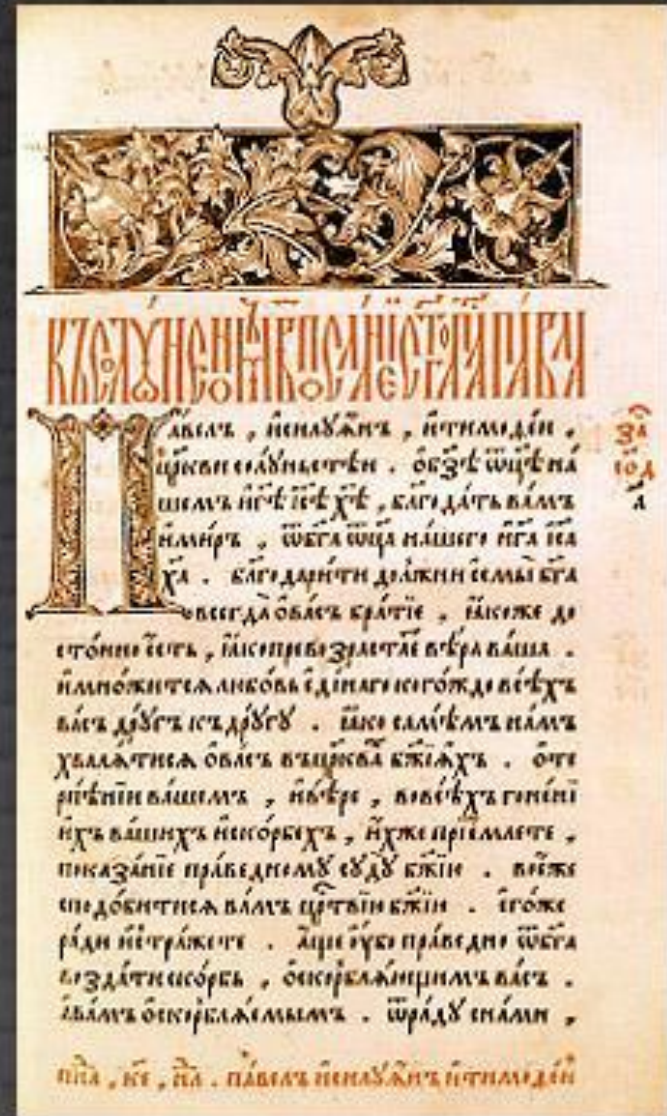 Къ солꙋнѧномъ в҃ посланїе ст҃го ап҃ла па́vла
Па́велъ , и҆ силꙋѧ́нъ , и҆ тимоѳе́и ,
цр҃кви солꙋ́ньстѣи . о҆ бз҃ѣ ѿц҃ѣ на́
шемъ и҆ г҃ѣ і҆с҃ѣ х҃ѣ , бл҃года́ть ва́мъ
и҆ ми́ръ , ѿ бг҃а ѿц҃а на́шего и҆ г҃а і҆с҃а
х҃а . бл҃годари́ти до́лжни є҆смы̀ бг҃а
всегда̀ ѡ҆ ва́съ бра́тїе , ꙗ҆́коже до
сто́йно є҆́сть , ꙗ҆́ко превозраста́е вѣ́ра ва́ша .
и҆ мно́житсѧ любо́вь є҆ди́наго кого́ждо всѣ́хъ
ва́съ дрꙋ́гъ къ дрꙋ́гꙋ . ꙗ҆́ко самѣ́мъ на́мъ
хвалѧ́тисѧ о҆ ва́съ въ цр҃ква бж҃їѧхъ . о҆ те
рпѣ́нїи ва́шемъ , и҆ вѣ́ре , во всѣ́хъ гоне́нї
и҆хъ ва́шихъ и҆ ско́рбехъ , и҆́хже прїе́млете ,
показа́нїе пра́ведномꙋ сꙋдꙋ̀ бж҃їю . во є҆́же
сподо́битисѧ ва́мъ цр҃твїю бж҃їю . є҆го́же
ра́ди и҆ стра́жете . а҆́ще ᲂу҆́бо пра́ведно ѿ бг҃а
возда́ти ско́рбь , ѡ҆скорблѧ́ющимъ ва́съ .
а҆ ва́мъ ѡ҆скорблѧ́емымъ . ѿра́дꙋ сна́ми ,
па́велъ и҆ силꙋѧ́нъ и҆ тимоѳе́и